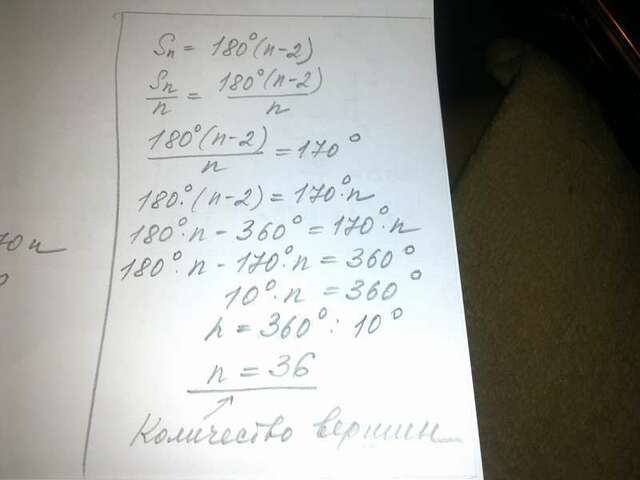 Sn = 180°(n-2)
Sn/n = 180°(n-2)/n
180°(n-2)/n = 170°
180°·(n-2) = 170°·n
180°·n - 360° = 170°·n
180°·n - 170°·n = 360°
10°·n = 360°
n = 360° : 10°
n = 36
Количество вершин